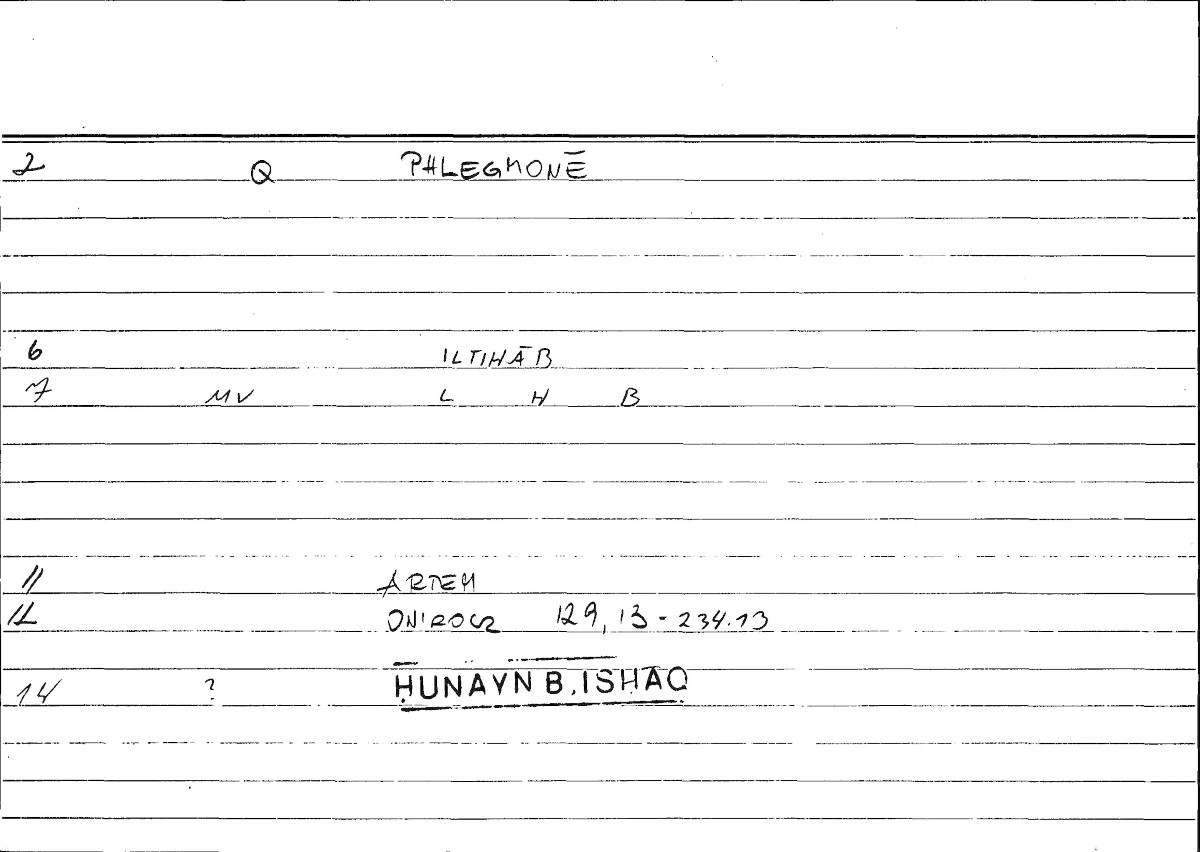 2 Q PHLEGMONĒ
6 ILTIHĀB
7 MV L H B
11 ARTEM
12 ONIROCR 129,13-234.13
14 ? ḤUNAYN B. ISḤĀQ